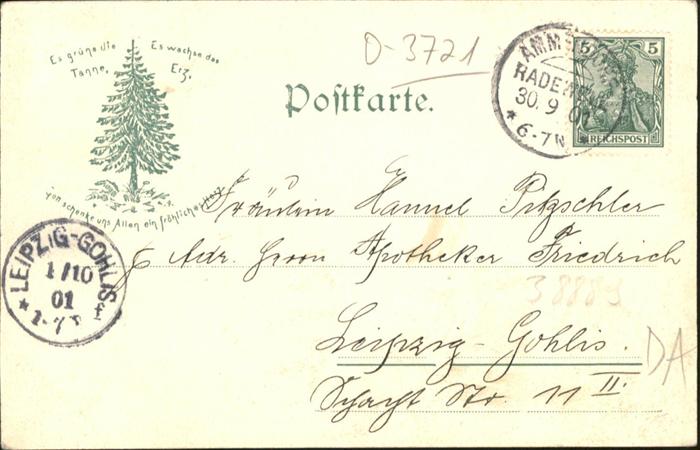 Es grüne die Tanne,
Es wachse das Erz,
Gott schenke uns Allen ein fröhliches Herz
D-3721
Postkarte.
RADE
30. 9. 01
* 6-7 N *
5 5
REICHSPOST
LEIPZIG-GOHLIS
1/10
01
* 1-7 f
Fräulein Hannel Pitzschler
Adr. Herrn Apotheker Friedrich
38889
Leipzig-Gohlis.
DA
Schacht Str. 11 II.